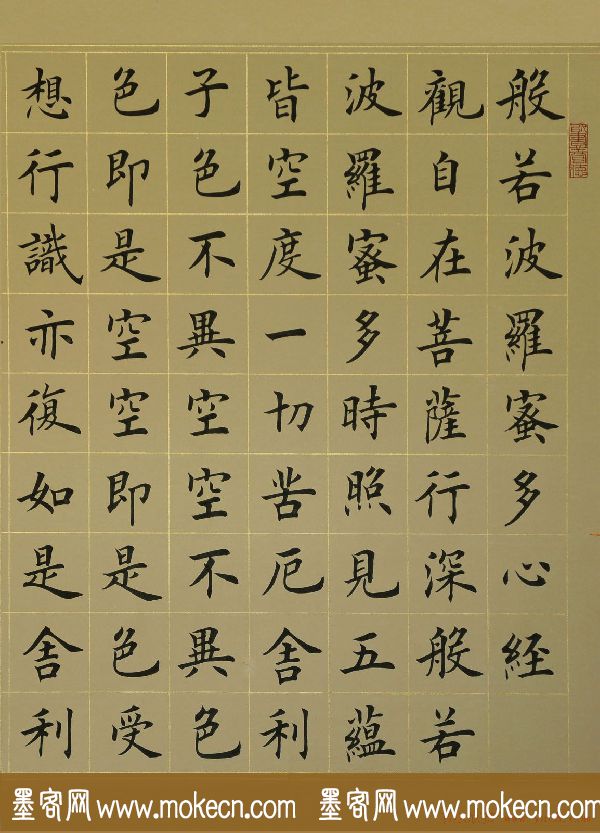 般若波羅蜜多心經
觀自在菩薩行深般若
波羅蜜多時照見五蘊
皆空度一切苦厄舍利
子色不異空空不異色
色即是空空即是色受
想行識亦復如是舍利
墨客网 www.mokecn.com 墨客网 www.mokecn.com